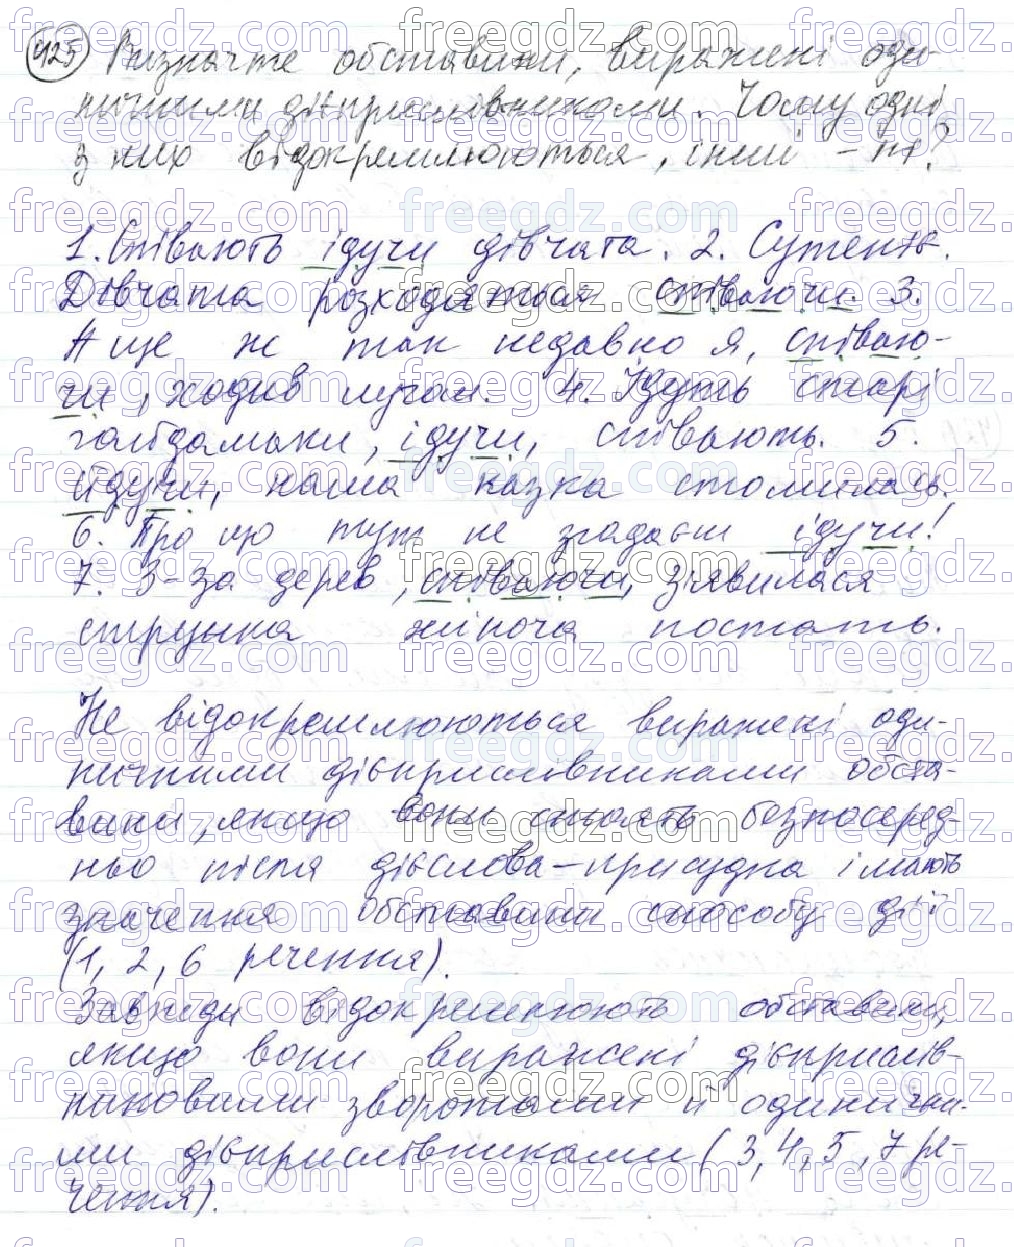 425 Визначте обставини, виражені оди-
ничними дієприслівниками. Чому одні
з них відокремлюються, інші – ні?
1. Співають ідучи дівчата. 2. Сутеніє.
Дівчата розходяться співаючи. 3.
А ще ж так недавно я, співаю-
чи, ходив лугом. 4. Ідуть старі
гайдамаки, ідучи, співають. 5.
Йдучи, наша казка стомилась.
6. Про що тут не згадаєш ідучи!
7. З-за дерев, співаючи, з'явилася
струнка жіноча постать.
Не відокремлюються виражені оди-
ничними дієприслівниками обста-
вини, якщо вони стоять безпосеред-
ньо після дієслова-присудка і мають
значення обставини способу дії
(1, 2, 6 речення).
Завжди відокремлюють обставини,
якщо вони виражені дієприслів-
никовими зворотами й одинични-
ми дієприслівниками (3, 4, 5, 7 ре-
чення).